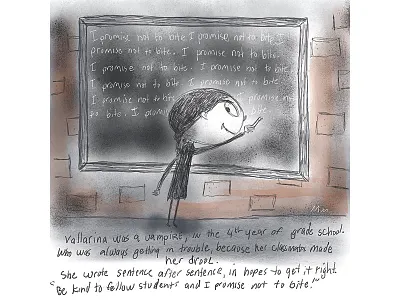 I promise not to bite I promise not to bite I
promise not to bite. I promise not to bite.
I promise not to bite. I promise not to bite
I promise not to bite I promise not to bite.
I promise not to bite promise not
to bite. I promise
Vallarina was a vampire, in the 4th year of grade school.
Who was always getting in trouble, because her classmates made
her drool.
She wrote sentence after sentence, in hopes to get it right.
"Be kind to fellow students and I promise not to bite!"